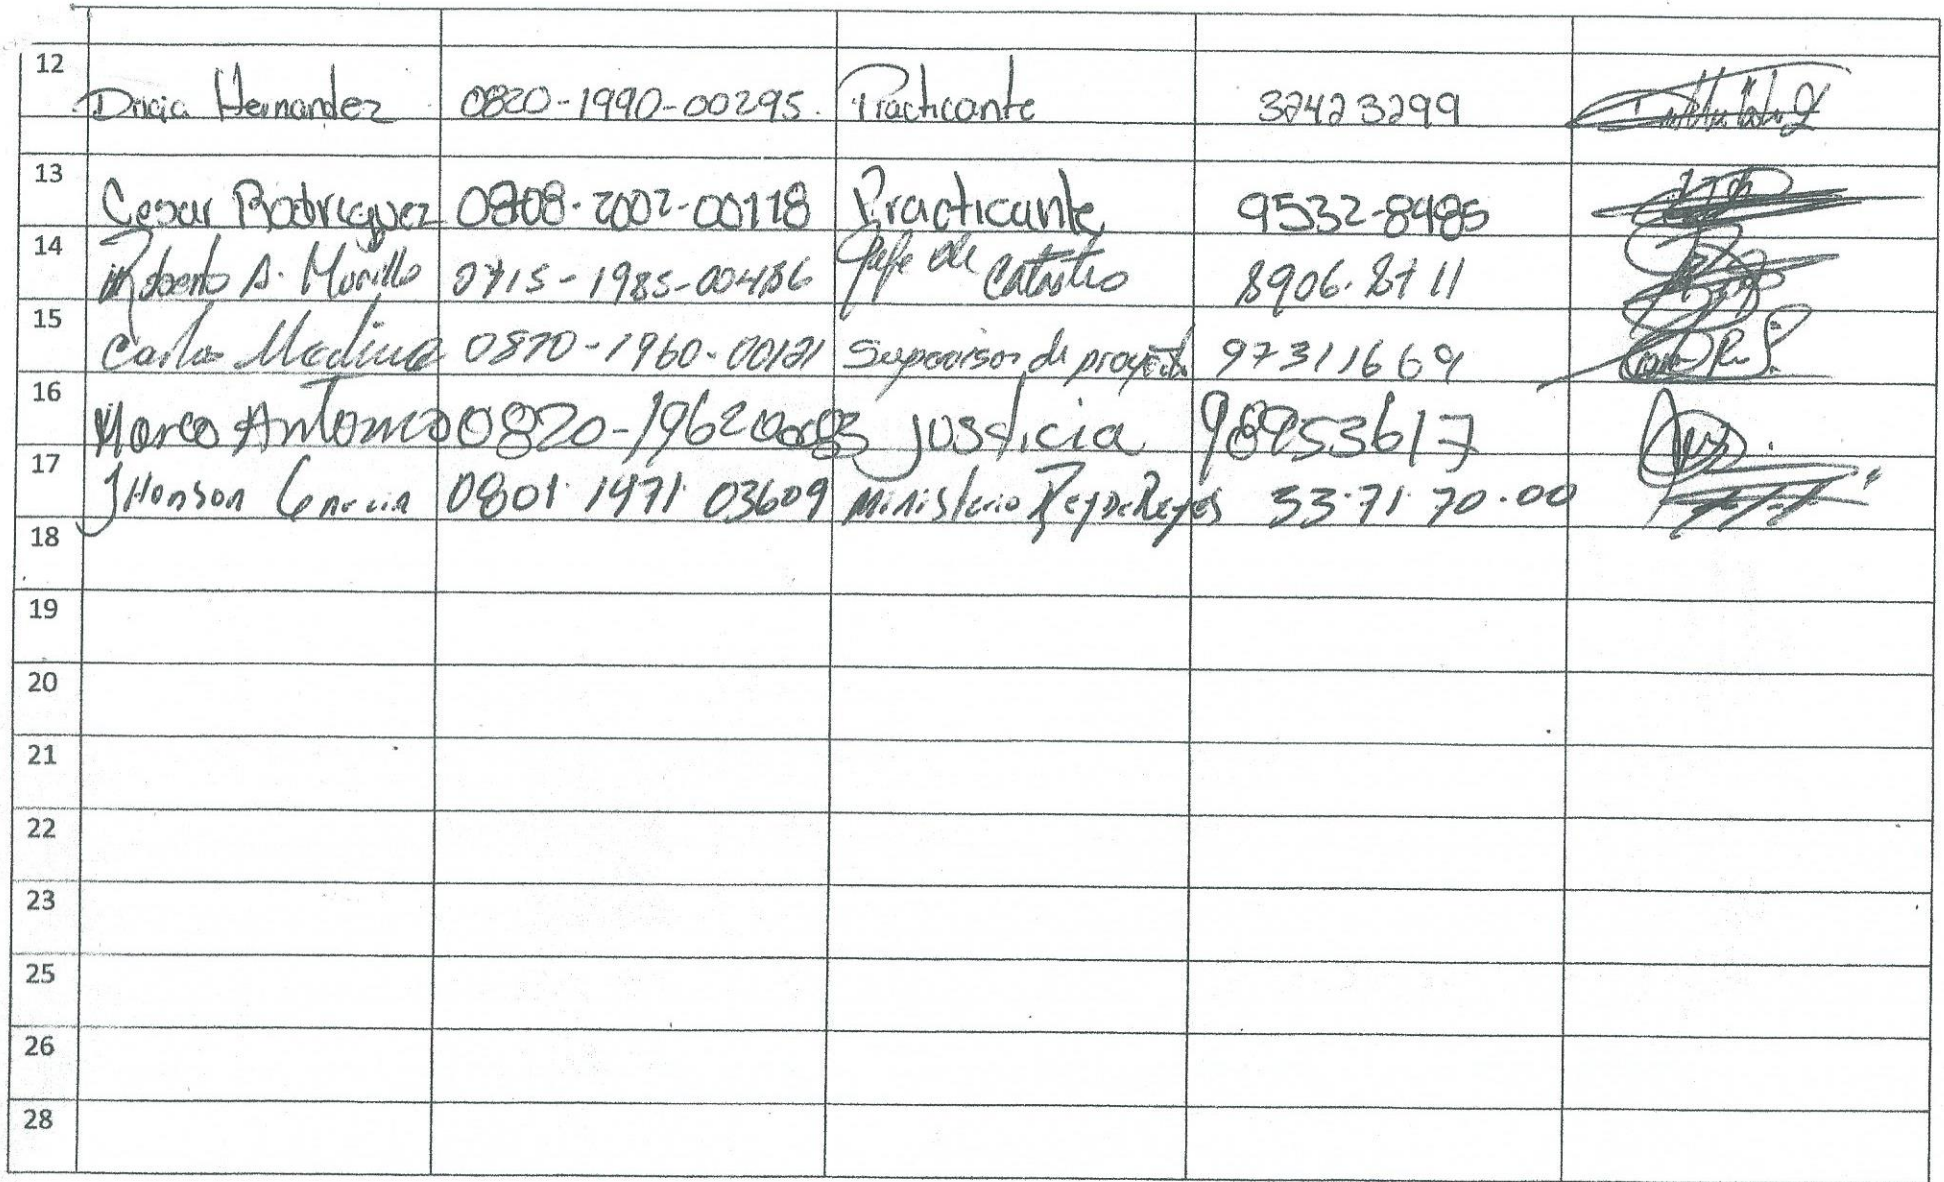 12 Dricia Hernandez 0820-1990-00295. Practicante 32423299
13 Cesar Rodriguez 0808-2002-00118 Practicante 9532-8485
14 Roberto A. Murillo 0715-1985-00486 Jefe de Catastro 8906-8711
15 Carlos Medina 0820-1960-00121 Supervisor de proyecto 97311669
16 Marco Antonio 0820-196200083 Justicia 98953617
17 JHonson Garcia 0801 1971 03609 Ministerio Rey de Reyes 33-71-70-00
18
19
20
21
22
23
25
26
28